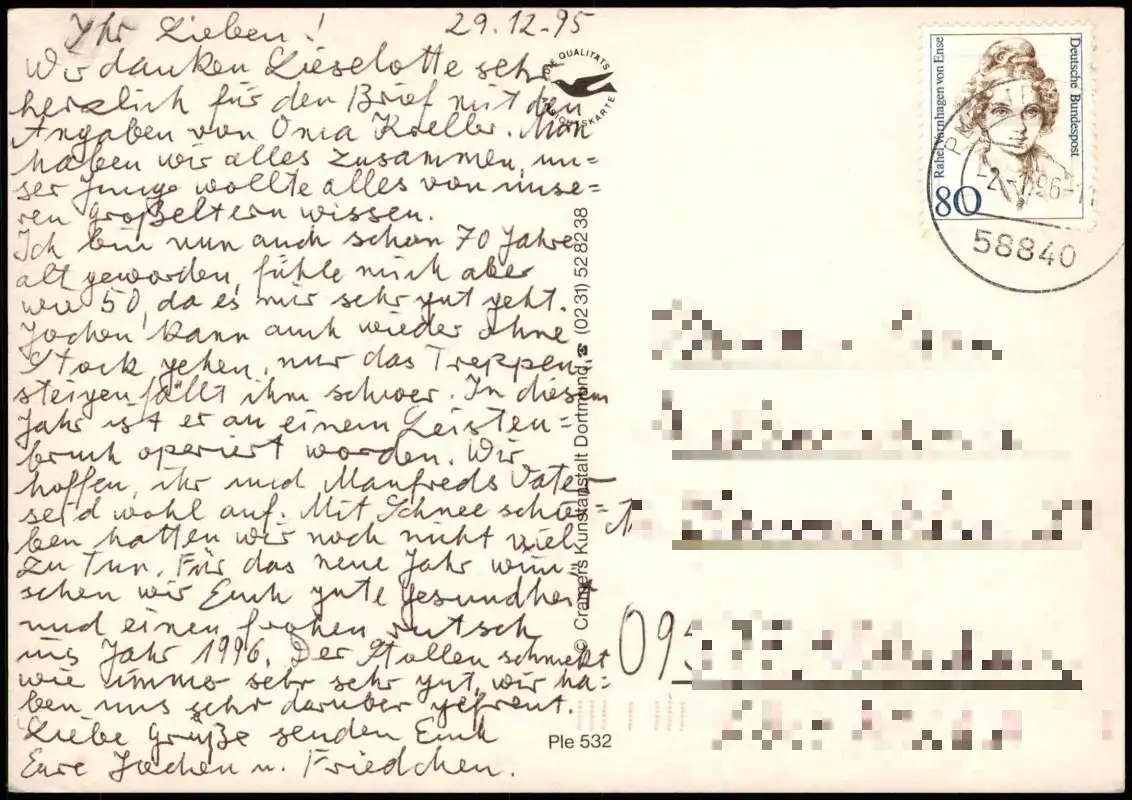 Ihr Lieben! 29.12.95
Wir danken Lieselotte sehr
herzlich für den Brief mit den
Angaben von Oma Kreller. Nun
haben wir alles zusammen, un=
ser Junge wollte alles von unse=
ren Großeltern wissen.
Ich bin nun auch schon 70 Jahre
alt geworden, fühle mich aber
wie 50, da es mir sehr gut geht.
Jochen kann auch wieder ohne
Stock gehen, nur das Treppen-
steigen fällt ihm schwer. In diesem
Jahr ist er an einem Leisten=
bruch operiert worden. Wir
hoffen, ihr und Manfreds Vater
seid wohl auf. Mit Schnee schie=
ben hatten wir noch nicht viel
zu tun. Für das neue Jahr wün=
schen wir Euch gute Gesundheit
und einen frohen Rutsch
ins Jahr 1996. Der Stollen schmekt
wie immer sehr sehr gut, wir ha=
ben uns sehr darüber gefreut.
Liebe Grüße senden Euch
Eure Jochen u. Friedchen.
DIE QUALITÄTS
© Cramers Kunstanstalt Dortmund ☎ (0231) 528238
Ple 532
Rahel Varnhagen von Ense
Deutsche Bundespost
80
58840
09